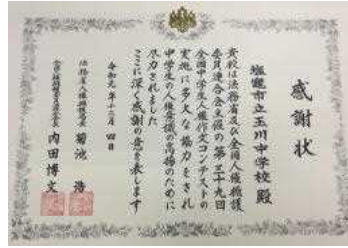 感謝状
塩竈市立玉川中学校 殿
貴校は法務省及び全国人権擁護
委員連合会主催の第三十九回
全国中学生人権作文コンテストの
実施に多大な協力をされ
中学生の人権意識の高揚のために
尽力されました
ここに深く感謝の意を表します
令和元年十二月 四日
法務省人権擁護局長 菊池 浩
全国人権擁護委員連合会長 内田博文